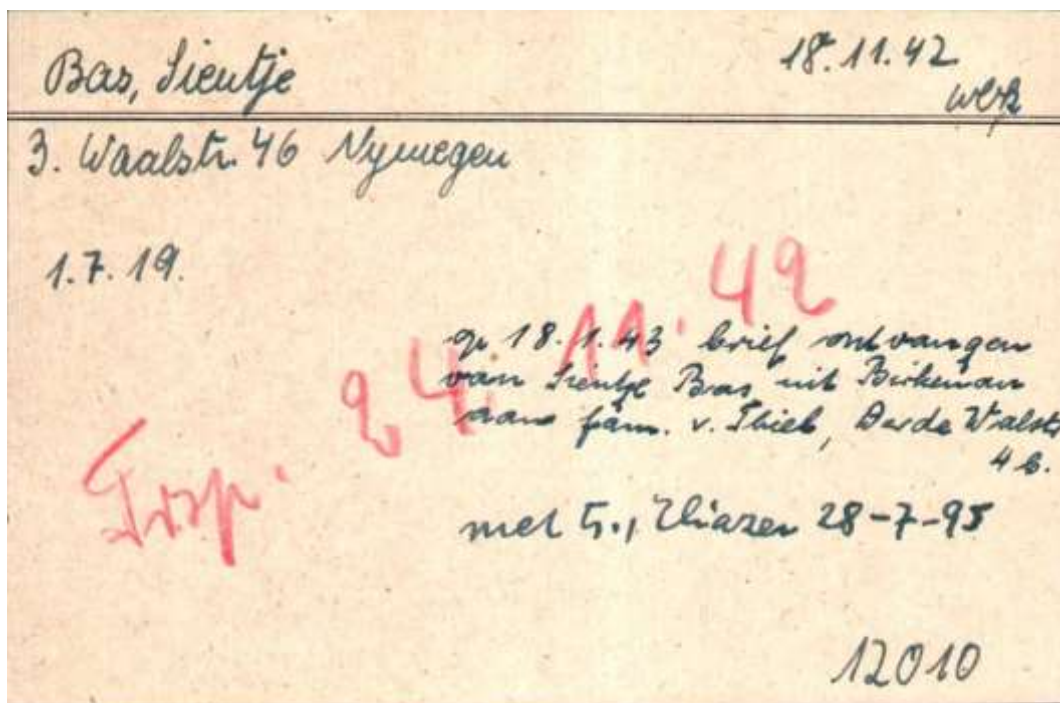 Bas, Sientje
18.11.42
3. Waalstr. 46 Nymegen
1.7.19.
Trsp. 24.11.42
op 18.1.43 brief ontvangen
van Sientje Bas uit Birkenau
aan fam. v. Thiel, Derde Walstr
46.
met G., Eliazer 28-7-95
12010